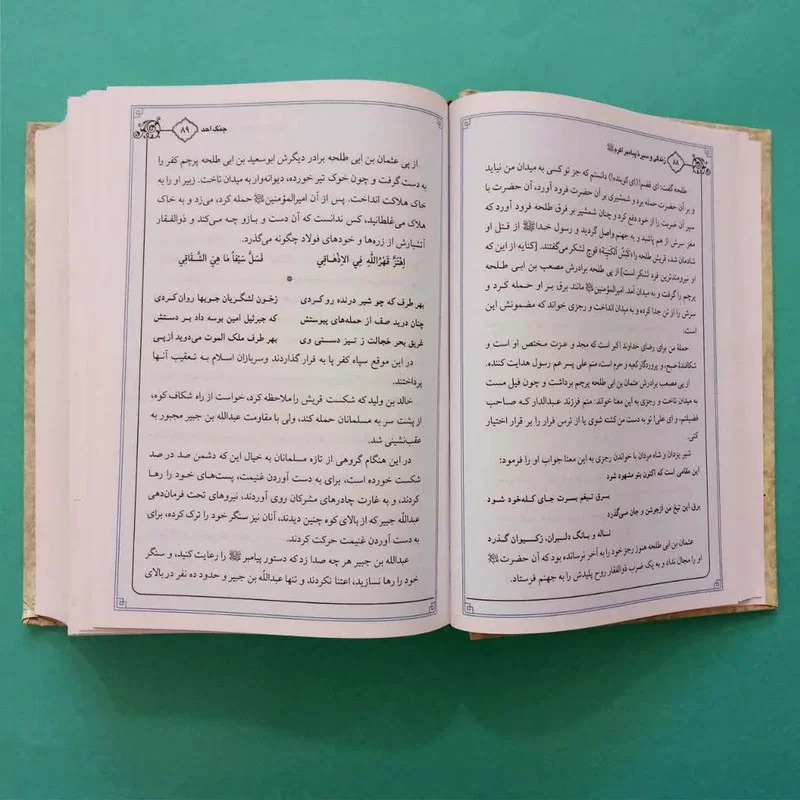 ۸۸ زندگی و سیره پیامبر اکرم ﷺ
طلحه گفت: ای قضم! (ای کوبنده!) دانستم که جز تو کسی به میدان من نیاید
و بر آن حضرت حمله برد و شمشیری بر آن حضرت فرود آورد، آن حضرت با
سپر آن ضربت را از خود دفع کرد و چنان شمشیر بر فرق طلحه فرود آورد که
مغز سرش از هم پاشید و به جهنم واصل گردید و رسول خدا ﷺ از قتل او
شادمان شد، قریش طلحه را «کَبْشُ الْکَتیبَة» قوچ لشکر می‌گفتند. [کنایه از این که
او نیرومندترین فرد لشکر است] از پی طلحه برادرش مصعب بن ابی طلحه
پرچم را گرفت و به میدان آمد. امیرالمؤمنین مانند برق بر او حمله کرد و
سرش را از تن جدا کرده و به میدان انداخت و رجزی خواند که مضمونش این
است.
حملهٔ من برای رضای خداوند اکبر است که مجد و عزت مختص او است و
شکافندهٔ صبح، و پروردگار کعبه و حرم است، منم علی پسر عم رسول هدایت کننده.
از پی مصعب برادرش عثمان بن ابی طلحه پرچم برداشت و چون فیل مست
به میدان تاخت و رجزی به این معنا خواند: منم فرزند عبدالدار که صاحب
فضیلتم، و ای علی! تو به دست من کشته شوی یا از ترس فرار را بر قرار اختیار
کنی.
شیر یزدان و شاه مردان با خواندن رجزی به این معنا جواب او را فرمود:
این مقامی است که اکنون بتو مشهود شود
برق تیغم بسرت جای کله‌خود شود
برق این تیغ من ازجوشن و جان می‌گذرد
ناله و بانگ دلیران، زکیوان گذرد
عثمان بن ابی طلحه هنوز رجز خود را به آخر نرسانده بود که آن حضرت ﷺ
او را مجال نداد و به یک ضرب ذوالفقار روح پلیدش را به جهنم فرستاد.
جنگ احد ۸۹
از پی عثمان بن ابی طلحه برادر دیگرش ابوسعید بن ابی طلحه پرچم کفر را
به دست گرفت و چون خوک تیر خورده، دیوانه‌وار به میدان تاخت. زیبر او را به
خاک هلاکت انداخت. پس از آن امیرالمؤمنین حمله کرد، می‌زد و به خاک
می‌غلطانید، کس ندانست که آن دست و بازو چه می‌کند و ذوالفقار
آتشبارش از زره‌ها و خودهای فولاد چگونه می‌گذرد.
اِهْتَزَّ قَهْرُاللّهِ فِي الاِذْهَاقِي فَسَلَّ سَیْفاً مَا هِيَ الشَّقَاقِي
*
بهر طرف که چو شیر درنده رو کردی زخون لشگریان جوبها روان کردی
چنان درید صف از حمله‌های پیوستش که جبرئیل امین بوسه داد بر دستش
غریق بحر خجالت ز تیز دستی وی بهر طرف ملک الموت می‌دوید ازپی
در این موقع سپاه کفر پا به فرار گذاردند وسربازان اسلام به تعقیب آنها
پرداختند.
خالد بن ولید که شکست قریش را ملاحظه کرد، خواست از راه شکاف کوه،
از پشت سر به مسلمانان حمله کند، ولی با مقاومت عبدالله بن جبیر مجبور به
عقب‌نشینی شد.
در این هنگام گروهی از تازه مسلمانان به خیال این که دشمن صد در صد
شکست خورده است، برای به دست آوردن غنیمت، پست‌های خود را رها
کردند، و به غارت چادرهای مشرکان روی آوردند، نیروهای تحت فرمان‌دهی
عبداللّه جبیر که از بالای کوه چنین دیدند، آنان نیز سنگر خود را ترک کرده، برای
به دست آوردن غنیمت حرکت کردند.
عبدالله بن جبیر هر چه صدا زد که دستور پیامبر ﷺ را رعایت کنید، و سنگر
خود را رها نسازید، اعتنا نکردند و تنها عبداللّه بن جبیر و حدود ده نفر در بالای